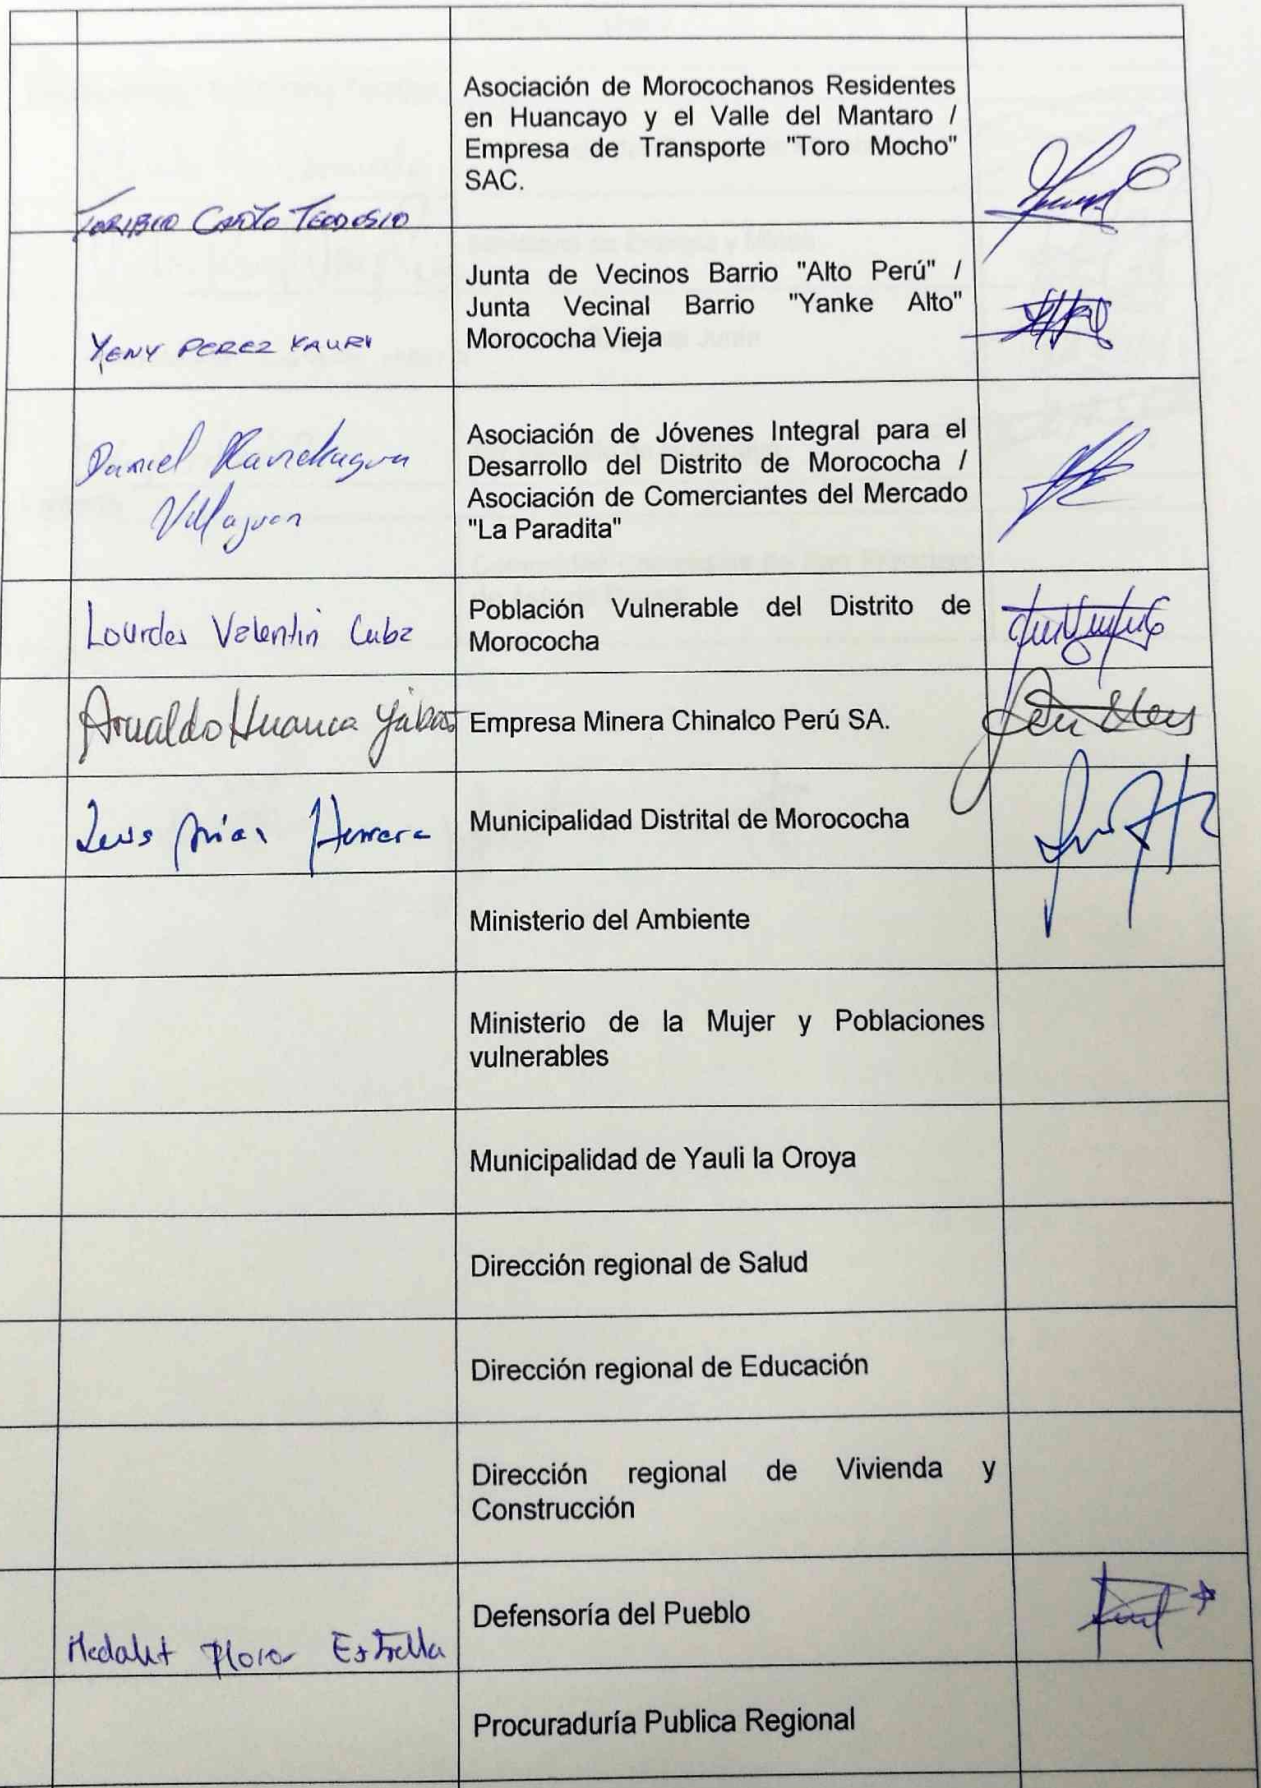 Asociación de Morocochanos Residentes
en Huancayo y el Valle del Mantaro /
Empresa de Transporte "Toro Mocho"
SAC.
TORIBIO CANTO TEODOSIO
Junta de Vecinos Barrio "Alto Perú" /
Junta Vecinal Barrio "Yanke Alto"
Morococha Vieja
YENY PEREZ YAURI
Asociación de Jóvenes Integral para el
Desarrollo del Distrito de Morococha /
Asociación de Comerciantes del Mercado
"La Paradita"
Daniel
Lourdes Valentin Cuba
Población Vulnerable del Distrito de
Morococha
Arnaldo Huanca
Empresa Minera Chinalco Perú SA.
Luis Arias Herrera
Municipalidad Distrital de Morococha
Ministerio del Ambiente
Ministerio de la Mujer y Poblaciones
vulnerables
Municipalidad de Yauli la Oroya
Dirección regional de Salud
Dirección regional de Educación
Dirección regional de Vivienda y
Construcción
Defensoría del Pueblo
Estrella
Procuraduría Publica Regional